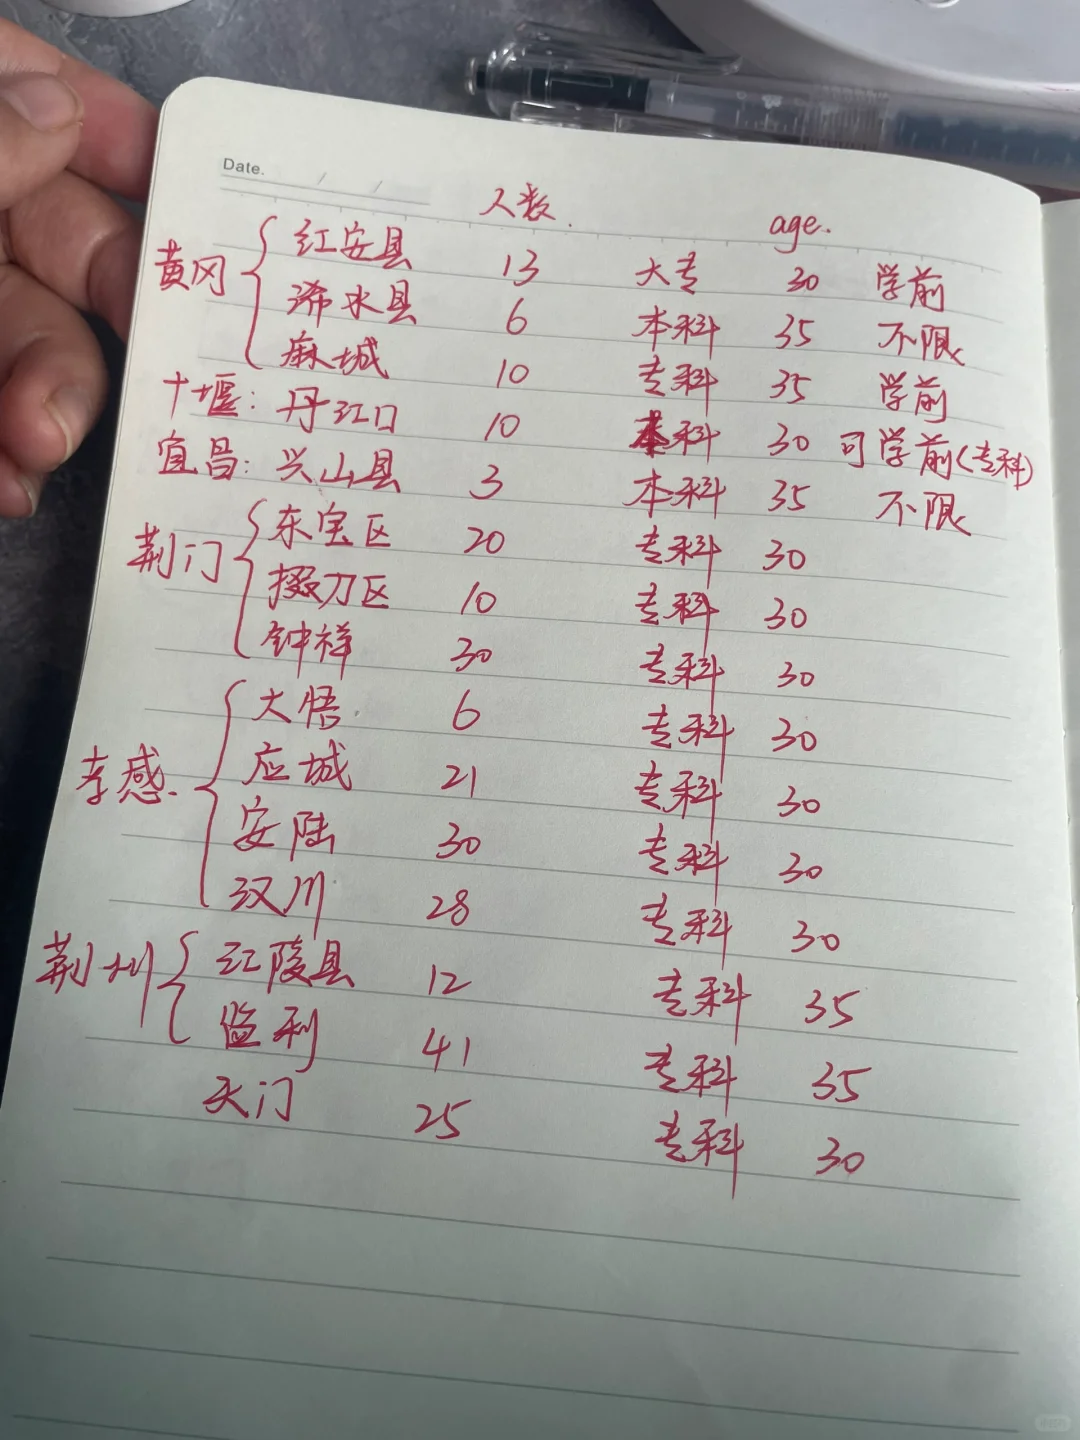 Date. / /
人数. age.
黄冈 红安县 13 大专 30 学前
浠水县 6 本科 35 不限
麻城 10 专科 35 学前
十堰: 丹江口 10 本科 30 可学前(专科)
宜昌: 兴山县 3 本科 35 不限
荆门 东宝区 20 专科 30
掇刀区 10 专科 30
钟祥 30 专科 30
孝感. 大悟. 6 专科 30
应城 21 专科 30
安陆 30 专科 30
汉川 28 专科 30
荆州 江陵县 12 专科 35
监利 41 专科 35
天门 25 专科 30